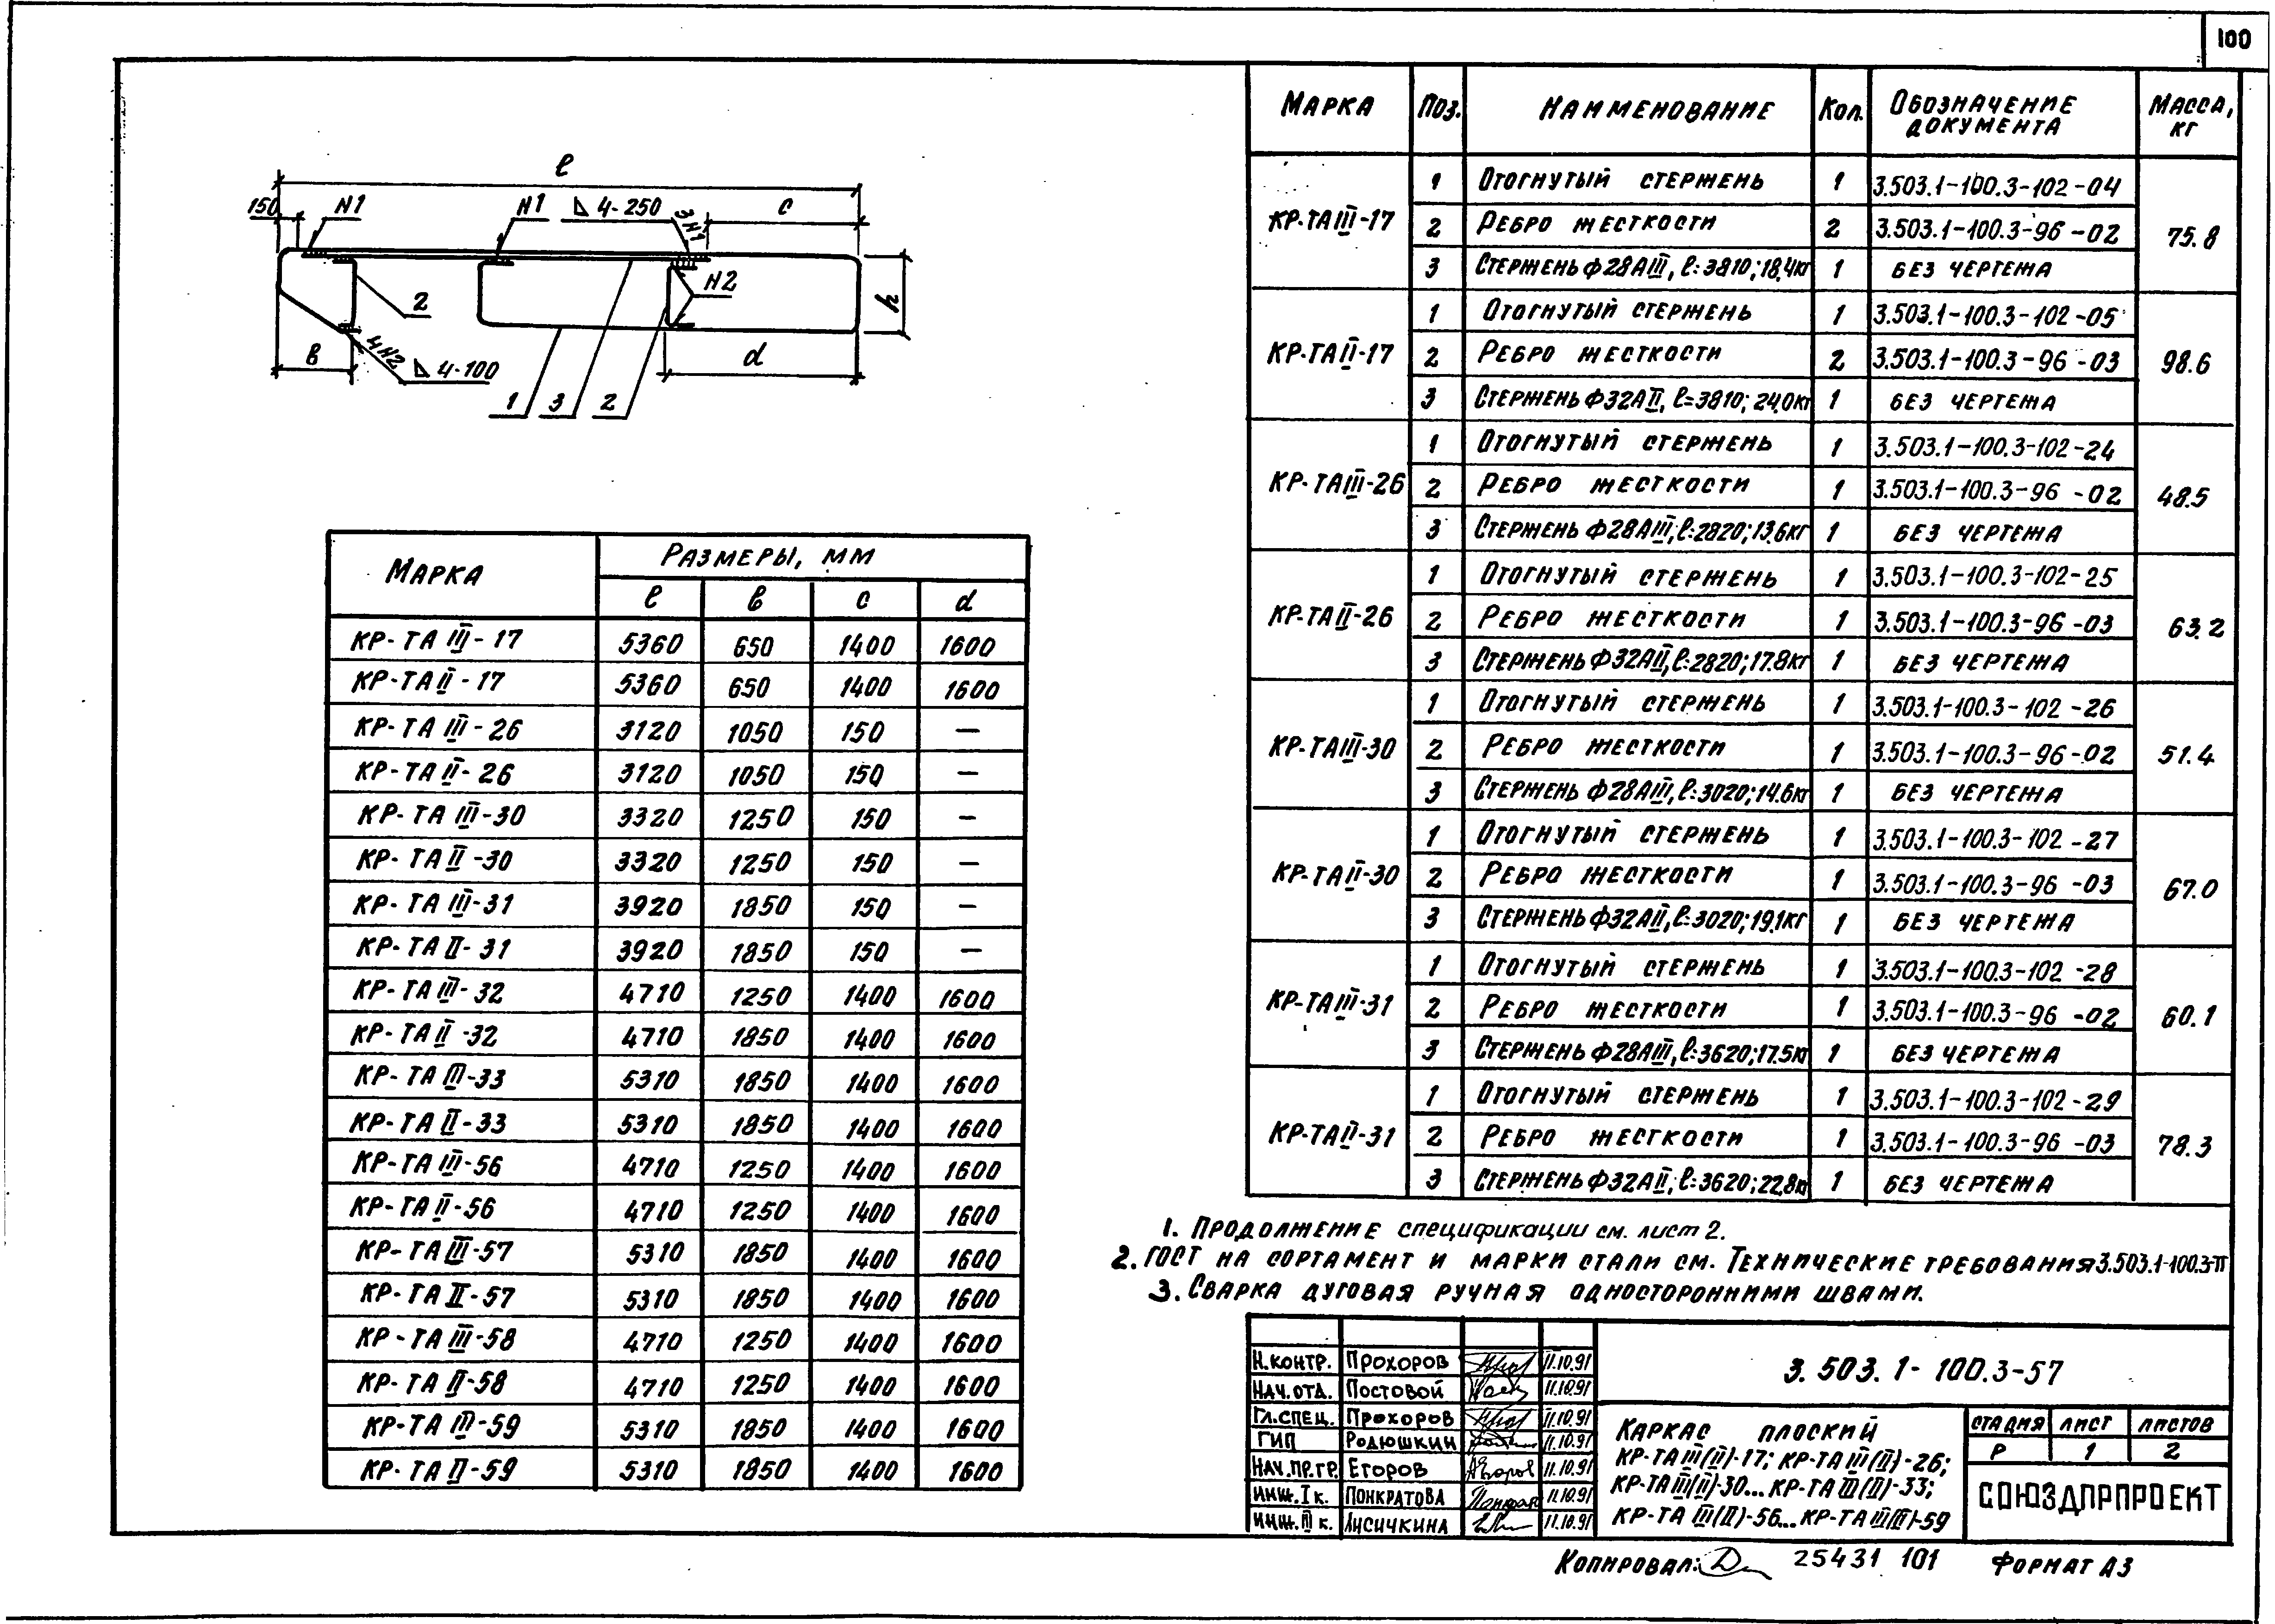 100
ℓ
150
N1
N1
4-250
3N1
c
N2
2
h
в
4N2
4-100
d
1
3
2
Марка
Размеры, мм
ℓ
в
c
d
КР-ТАIII-17 5360 650 1400 1600
КР-ТАII-17 5360 650 1400 1600
КР-ТАIII-26 3120 1050 150 —
КР-ТАII-26 3120 1050 150 —
КР-ТАIII-30 3320 1250 150 —
КР-ТАII-30 3320 1250 150 —
КР-ТАIII-31 3920 1850 150 —
КР-ТАII-31 3920 1850 150 —
КР-ТАIII-32 4710 1250 1400 1600
КР-ТАII-32 4710 1850 1400 1600
КР-ТАIII-33 5310 1850 1400 1600
КР-ТАII-33 5310 1850 1400 1600
КР-ТАIII-56 4710 1250 1400 1600
КР-ТАII-56 4710 1250 1400 1600
КР-ТАIII-57 5310 1850 1400 1600
КР-ТАII-57 5310 1850 1400 1600
КР-ТАIII-58 4710 1250 1400 1600
КР-ТАII-58 4710 1250 1400 1600
КР-ТАIII-59 5310 1850 1400 1600
КР-ТАII-59 5310 1850 1400 1600
Марка Поз. Наименование Кол. Обозначение документа Масса, кг
КР-ТАIII-17 75.8
1 Отогнутый стержень 1 3.503.1-100.3-102-04
2 Ребро жесткости 2 3.503.1-100.3-96-02
3 Стержень Ф28АIII, ℓ=3810; 18,4кг 1 без чертежа
КР-ТАII-17 98.6
1 Отогнутый стержень 1 3.503.1-100.3-102-05
2 Ребро жесткости 2 3.503.1-100.3-96-03
3 Стержень Ф32АII, ℓ=3810; 24.0кг 1 без чертежа
КР-ТАIII-26 48.5
1 Отогнутый стержень 1 3.503.1-100.3-102-24
2 Ребро жесткости 1 3.503.1-100.3-96-02
3 Стержень Ф28АIII, ℓ=2820; 13.6кг 1 без чертежа
КР-ТАII-26 63.2
1 Отогнутый стержень 1 3.503.1-100.3-102-25
2 Ребро жесткости 1 3.503.1-100.3-96-03
3 Стержень Ф32АII, ℓ=2820; 17.8кг 1 без чертежа
КР-ТАIII-30 51.4
1 Отогнутый стержень 1 3.503.1-100.3-102-26
2 Ребро жесткости 1 3.503.1-100.3-96-02
3 Стержень Ф28АIII, ℓ=3020; 14.6кг 1 без чертежа
КР-ТАII-30 67.0
1 Отогнутый стержень 1 3.503.1-100.3-102-27
2 Ребро жесткости 1 3.503.1-100.3-96-03
3 Стержень Ф32АII, ℓ=3020; 19.1кг 1 без чертежа
КР-ТАIII-31 60.1
1 Отогнутый стержень 1 3.503.1-100.3-102-28
2 Ребро жесткости 1 3.503.1-100.3-96-02
3 Стержень Ф28АIII, ℓ=3620; 17.5кг 1 без чертежа
КР-ТАII-31 78.3
1 Отогнутый стержень 1 3.503.1-100.3-102-29
2 Ребро жесткости 1 3.503.1-100.3-96-03
3 Стержень Ф32АII, ℓ=3620; 22,8кг 1 без чертежа
1. Продолжение спецификации см. лист 2.
2. ГОСТ на сортамент и марки стали см. Технические требования 3.503.1-100.3-ТТ
3. Сварка дуговая ручная односторонними швами.
Н.контр. Прохоров 11.10.91
Нач.отд. Постовой 11.10.91
Гл.спец. Прохоров 11.10.91
ГИП Родюшкин 11.10.91
Нач.пр.гр. Егоров 11.10.91
Инж.I к. Понкратова 11.10.91
Инж.III к. Лисичкина 11.10.91
3.503.1-100.3-57
Каркас плоский
КР-ТАIII(II)-17; КР-ТАIII(II)-26;
КР-ТАIII(II)-30...КР-ТАIII(II)-33;
КР-ТАIII(II)-56...КР-ТАIII(II)-59
Стадия Лист Листов
Р 1 2
СОЮЗДОРПРОЕКТ
Копировал: 25431 101 Формат А3